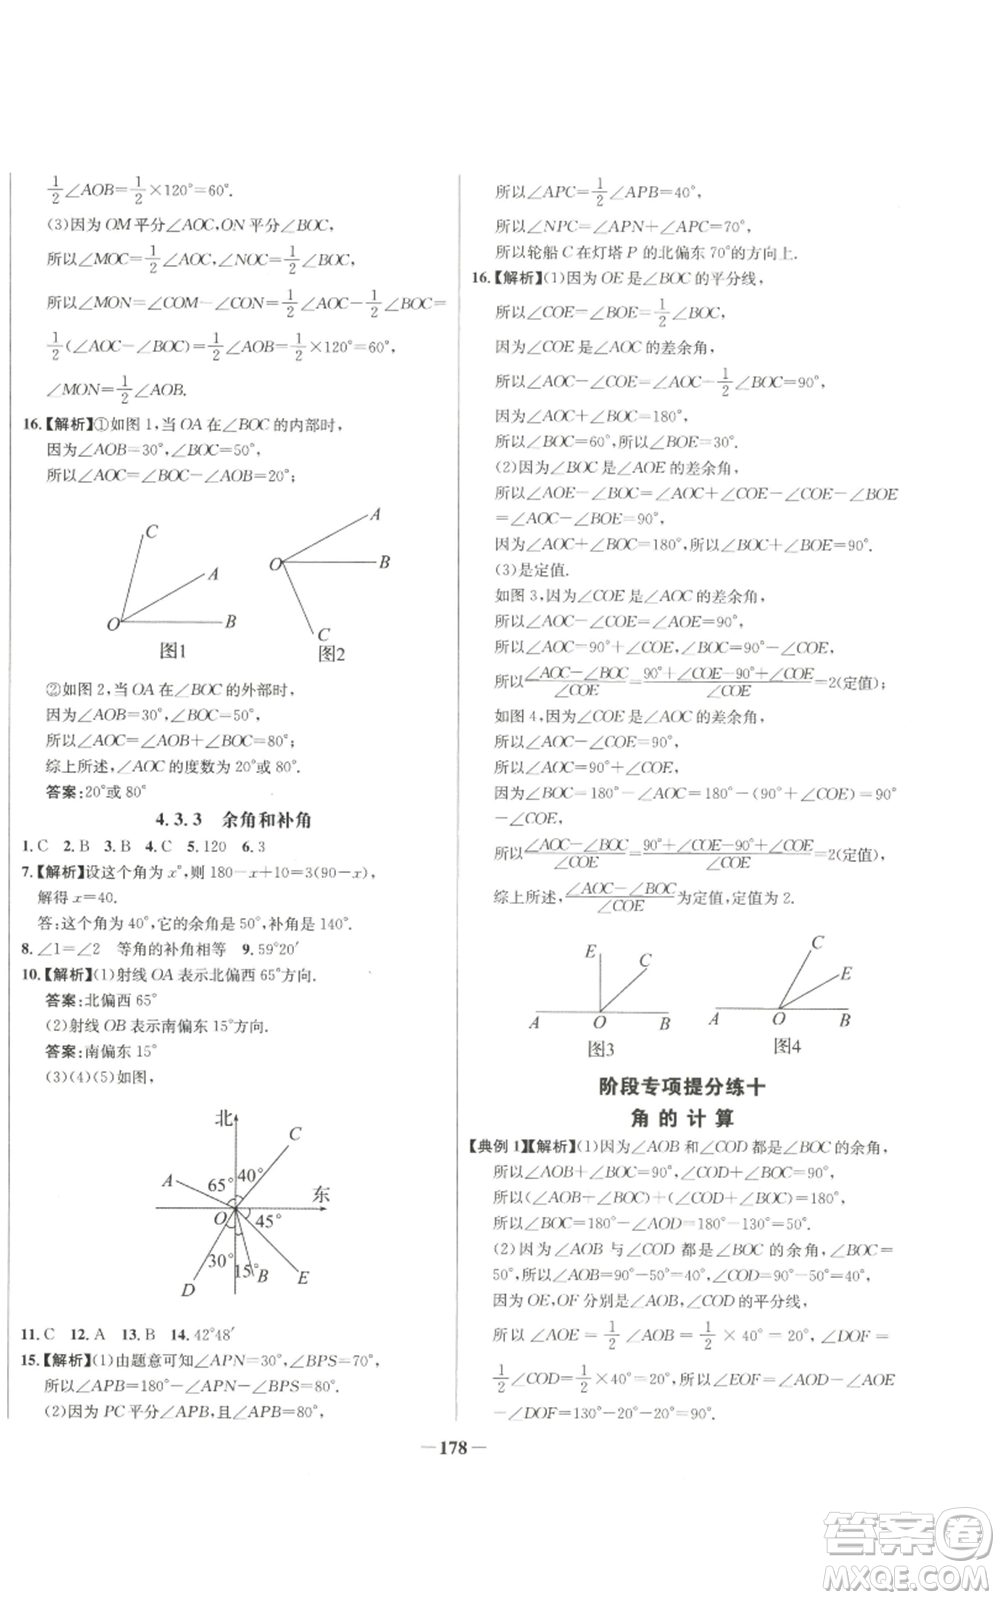 1/2∠AOB=1/2×120°=60°.
(3)因为 OM 平分∠AOC,ON 平分∠BOC,
所以∠MOC=1/2∠AOC,∠NOC=1/2∠BOC,
所以∠MON=∠COM-∠CON=1/2∠AOC-1/2∠BOC=
1/2(∠AOC-∠BOC)=1/2∠AOB=1/2×120°=60°,
∠MON=1/2∠AOB.
16.【解析】①如图 1,当 OA 在∠BOC 的内部时,
因为∠AOB=30°,∠BOC=50°,
所以∠AOC=∠BOC-∠AOB=20°;
C
A
O
B
图1
A
O
B
C
图2
②如图 2,当 OA 在∠BOC 的外部时,
因为∠AOB=30°,∠BOC=50°,
所以∠AOC=∠AOB+∠BOC=80°;
综上所述,∠AOC 的度数为 20°或 80°.
答案:20°或 80°
4.3.3 余角和补角
1.C 2.B 3.B 4.C 5.120 6.3
7.【解析】设这个角为 x°,则 180-x+10=3(90-x),
解得 x=40.
答:这个角为 40°,它的余角是 50°,补角是 140°.
8.∠1=∠2 等角的补角相等 9.59°20′
10.【解析】(1)射线 OA 表示北偏西 65°方向.
答案:北偏西 65°
(2)射线 OB 表示南偏东 15°方向.
答案:南偏东 15°
(3)(4)(5)如图,
北
C
A
65°
40°
东
O
45°
30°
15°
B
E
D
11.C 12.A 13.B 14.42°48′
15.【解析】(1)由题意可知∠APN=30°,∠BPS=70°,
所以∠APB=180°-∠APN-∠BPS=80°.
(2)因为 PC 平分∠APB,且∠APB=80°,
所以∠APC=1/2∠APB=40°,
所以∠NPC=∠APN+∠APC=70°,
所以轮船 C 在灯塔 P 的北偏东 70°的方向上.
16.【解析】(1)因为 OE 是∠BOC 的平分线,
所以∠COE=∠BOE=1/2∠BOC,
因为∠COE 是∠AOC 的差余角,
所以∠AOC-∠COE=∠AOC-1/2∠BOC=90°,
因为∠AOC+∠BOC=180°,
所以∠BOC=60°,所以∠BOE=30°.
(2)因为∠BOC 是∠AOE 的差余角,
所以∠AOE-∠BOC=∠AOC+∠COE-∠COE-∠BOE
=∠AOC-∠BOE=90°,
因为∠AOC+∠BOC=180°,所以∠BOC+∠BOE=90°.
(3)是定值.
如图 3,因为∠COE 是∠AOC 的差余角,
所以∠AOC-∠COE=∠AOE=90°,
所以∠AOC=90°+∠COE,∠BOC=90°-∠COE,
所以(∠AOC-∠BOC)/∠COE=(90°+∠COE-90°+∠COE)/∠COE=2(定值);
如图 4,因为∠COE 是∠AOC 的差余角,
所以∠AOC-∠COE=90°,
所以∠AOC=90°+∠COE,
因为∠BOC=180°-∠AOC=180°-(90°+∠COE)=90°
-∠COE,
所以(∠AOC-∠BOC)/∠COE=(90°+∠COE-90°+∠COE)/∠COE=2(定值),
综上所述,(∠AOC-∠BOC)/∠COE为定值,定值为 2.
E
C
A
O
B
图3
C
E
A
O
B
图4
阶段专项提分练十
角 的 计 算
【典例 1】【解析】(1)因为∠AOB 和∠COD 都是∠BOC 的余角,
所以∠AOB+∠BOC=90°,∠COD+∠BOC=90°,
所以(∠AOB+∠BOC)+(∠COD+∠BOC)=180°,
所以∠BOC=180°-∠AOD=180°-130°=50°.
(2)因为∠AOB 与∠COD 都是∠BOC 的余角,∠BOC=
50°,所以∠AOB=90°-50°=40°,∠COD=90°-50°=40°,
因为 OE,OF 分别是∠AOB,∠COD 的平分线,
所以∠AOE=1/2∠AOB=1/2×40°=20°,∠DOF=
1/2∠COD=1/2×40°=20°,所以∠EOF=∠AOD-∠AOE
-∠DOF=130°-20°-20°=90°.
— 178 —
答案卷
MXQE.COM